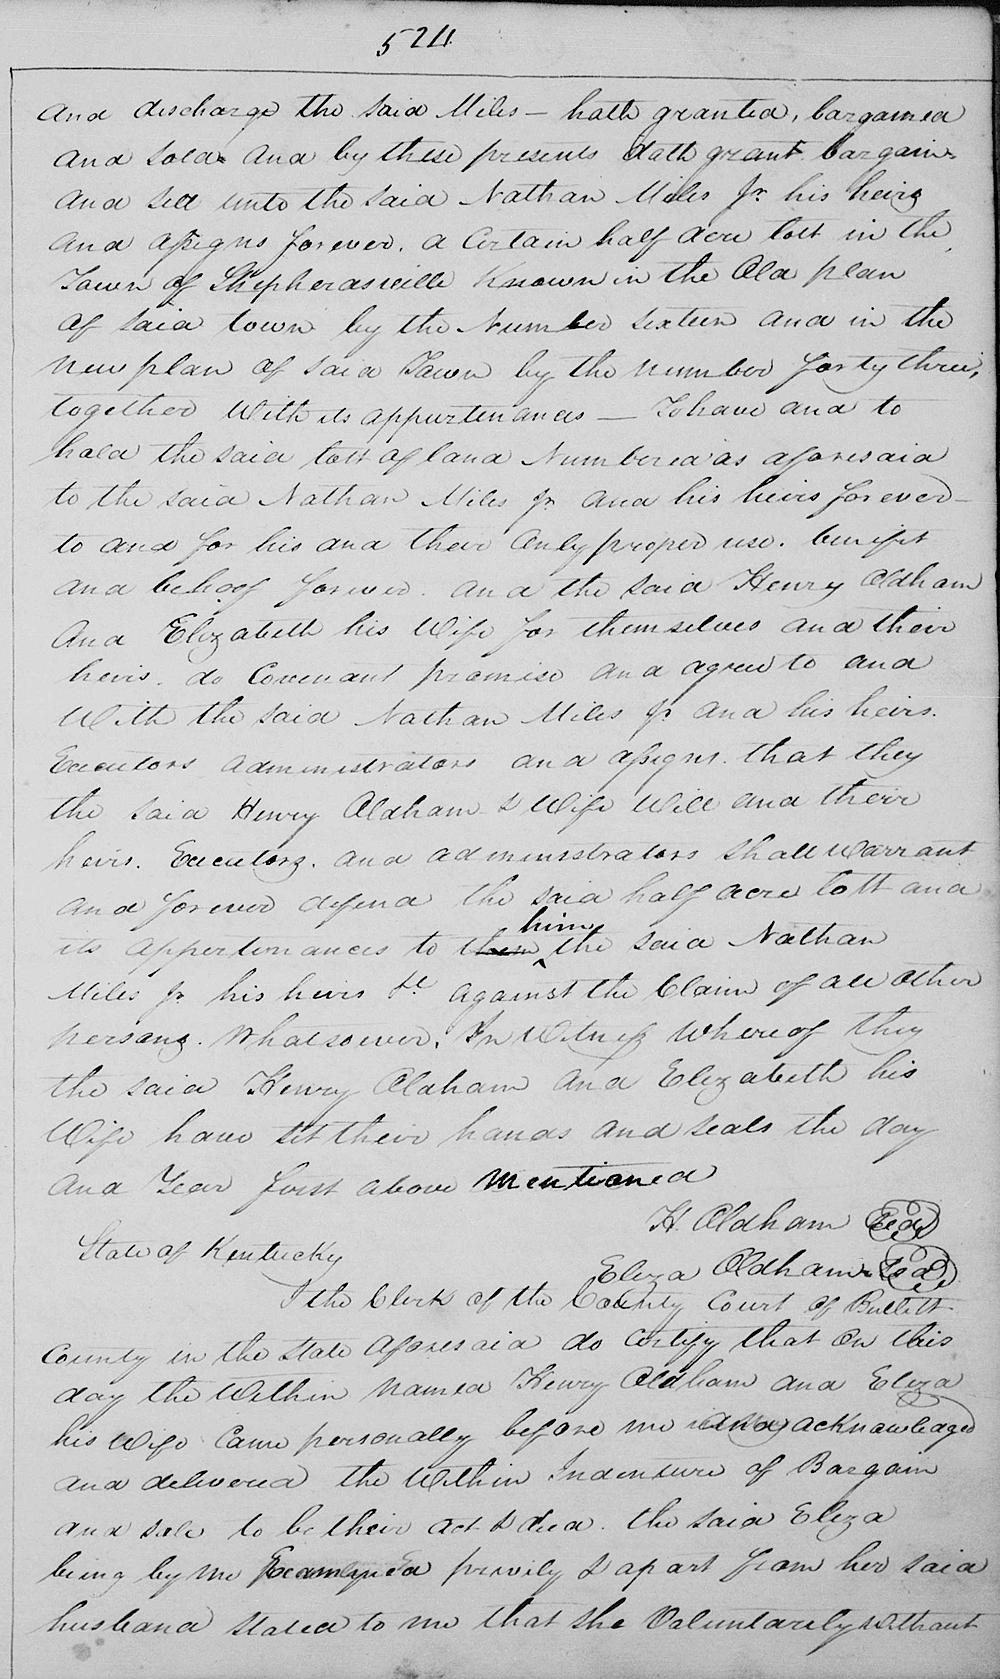 524
and discharge the said Miles – hath granted, bargained
and sold and by these presents doth grant bargain
and sell unto the said Nathan Miles Jr. his heirs
and assigns forever. a Certain half acre lott in the
Town of Shepherdsville Known in the Old plan
of said town by the Number sixteen and in the
new plan of said Town by the number forty three,
together With its appurtenances — To have and to
hold the said lott of land Numbered as aforesaid
to the said Nathan Miles Jr and his heirs forever –
to and for his and their only proper use. benifit
and behoof forever. and the said Henry Oldham
And Elizabeth his Wife for themselves and their
heirs. do Covenant promise and agree to and
With the said Nathan Miles Jr. and his heirs.
Executors administrators and assigns. that they
the said Henry Oldham & Wife Will and their
heirs. Executors. and administrators shall Warrant
and forever defend the said half acre lott and
its appertenances to them him the said Nathan
Miles Jr his heirs &c against the Claim of all other
persons. Whatsoever. In Witness Whereof they
the said Henry Oldham and Elizabeth his
Wife have set their hands and seals the day
and Year first above mentioned
H. Oldham Seal
State of Kentucky
Eliza Oldham Seal
I the Clerk of the County Court of Bullitt
County in the State aforesaid do certify that on this
day the Within named Henry Oldham and Eliza
his Wife Came personally before me and acknowledged
and delivered the Within Indenture of Bargain
and sale to be their act & deed. the said Eliza
being by me Examined privily & apart from her said
husband stated to me that she Voluntarily without